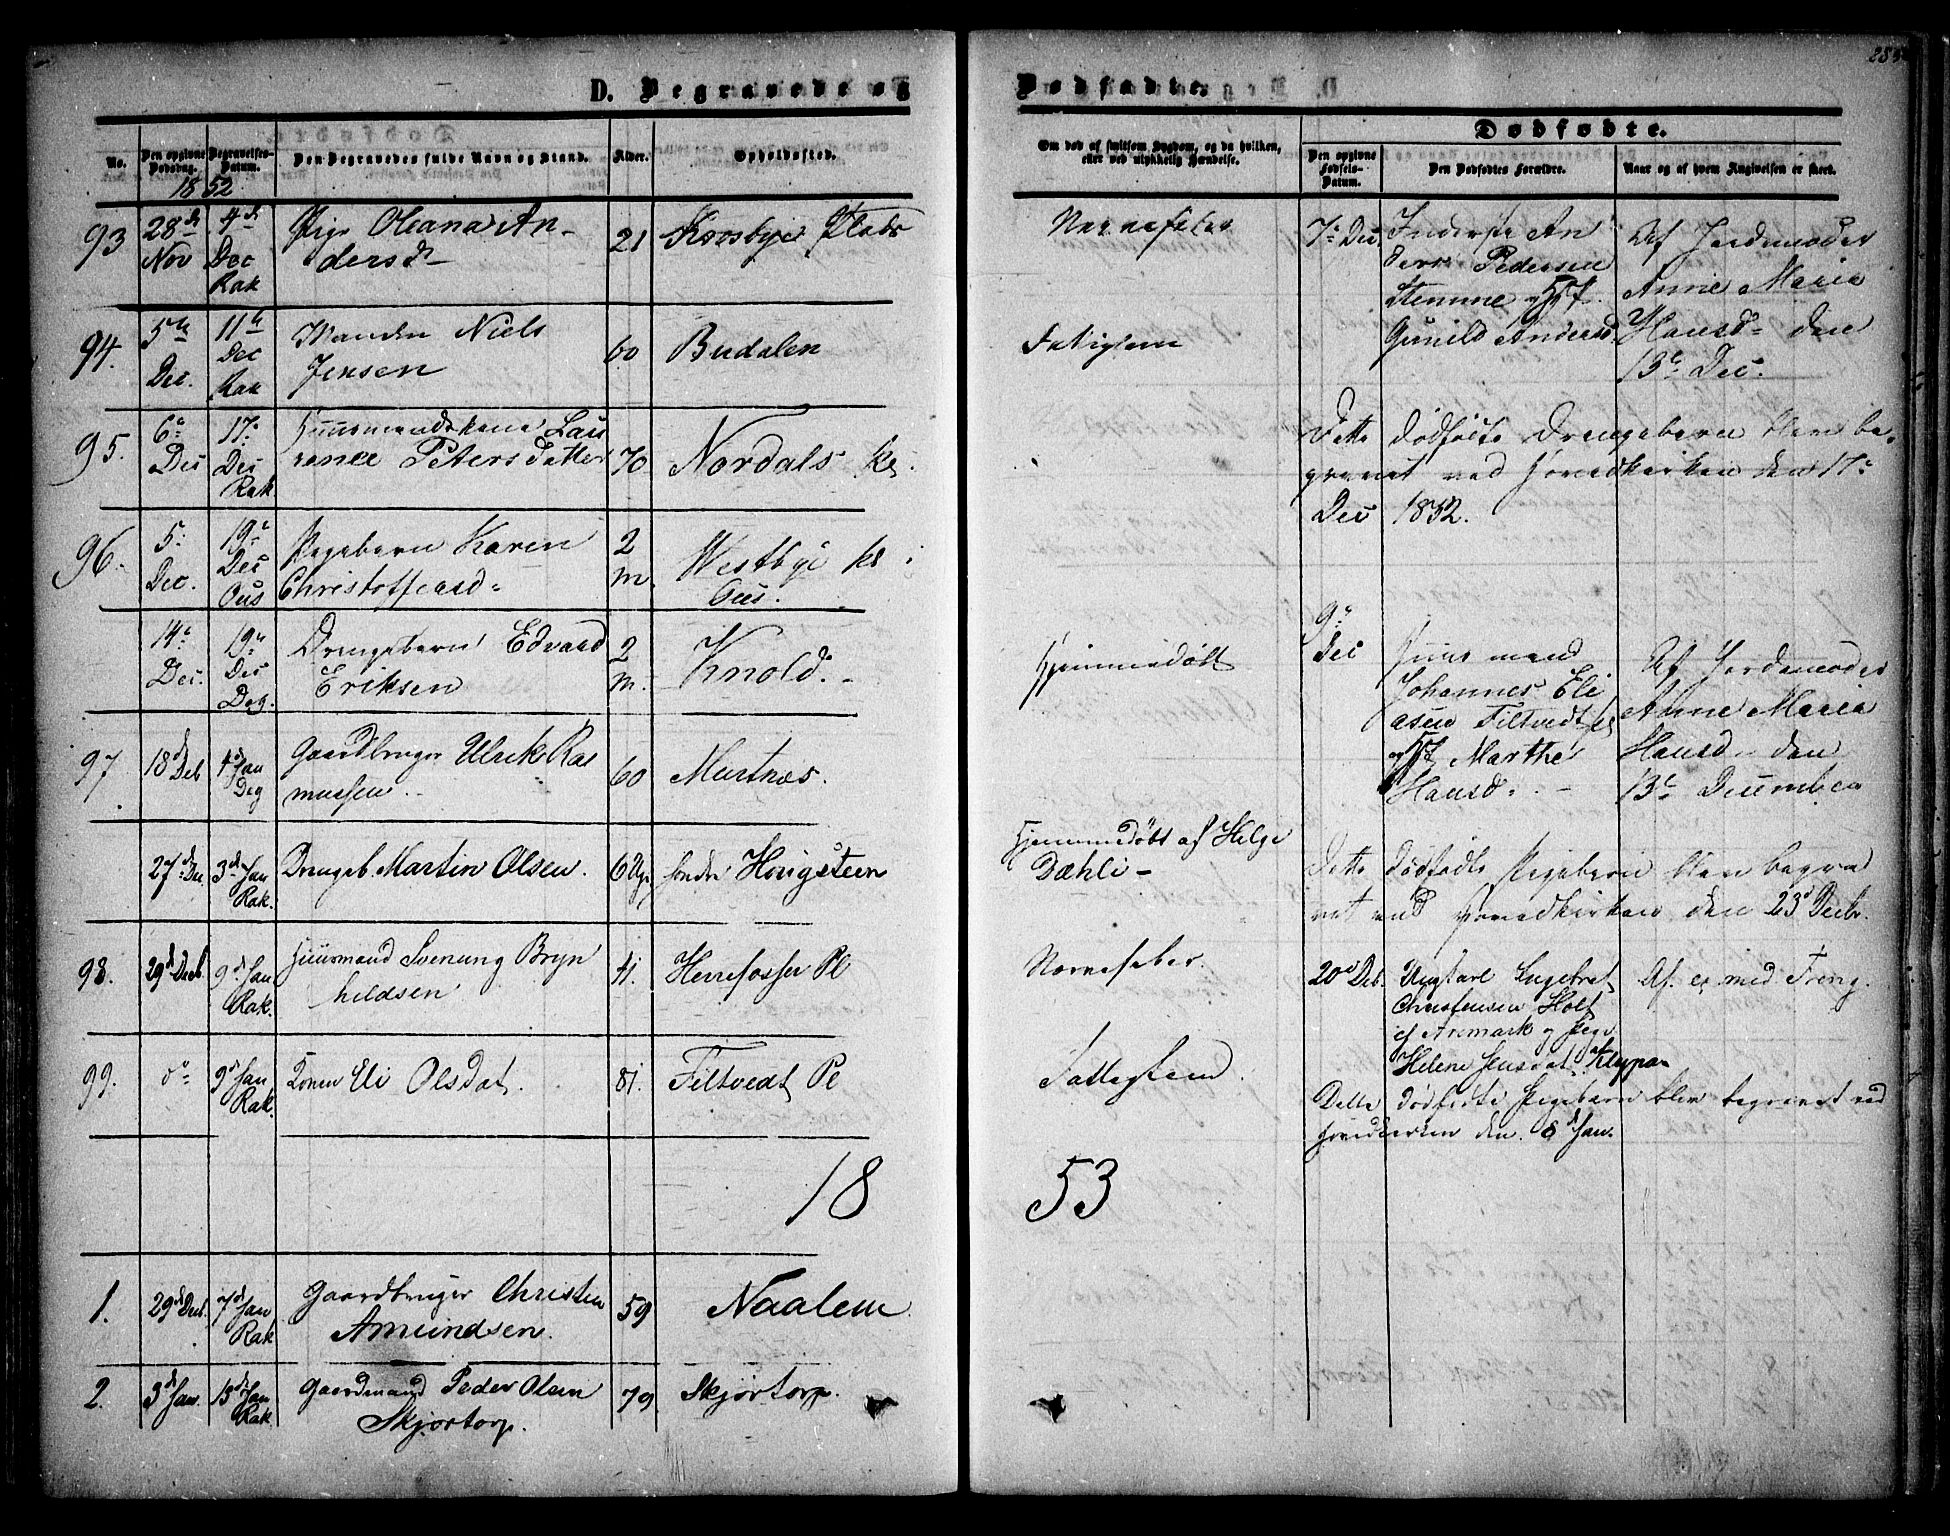 D. Begravede og
No.
Den opgivne Dødsdag.
Begravelses-Datum.
Den Begravedes fulde Navn og Stand.
Alder.
Opholdssted.
1852
93
28de Nov
4de Dec Rak
Pige Oleana An-
dersd
21
Korsbye Plads
94.
5te Dec.
11te Dec Rak
Manden Niels
Jensen
60
Budalen
95.
6te Dec
17de Dec Rak
Huusmandskone Lau
rence Petersdatter
70
Nordals
96.
5. Dec.
19de Dec Ous
Pigebarn Karen
Christoffersd.
2 m.
Westbye
Ous.
14de Dec.
19de Dec Deg.
Drengebarn Edvard
Eriksen
2 m.
Knold.
97.
18 Deb
4de Jan Deg
Gaardbruger Ulrik Ras
mussen.
60
Murtnæs.
27de Dec.
3de Jan Rak.
Drengeb. Martin Olsen.
6 Uger
søndre Hougsteen
98.
29de Decb.
9de Jan Rak.
Huusmand Svenung Bryn
hildsen
41.
Herrefosser Pl
99.
do
9de Jan Rak.
Konen Eli Olsdat.
81.
Filtvedt Pl
18
1.
29de Decb.
7de Jan Rak
Gaardbruger Christen
Amundsen.
59
Naalem
2.
3de Jan.
13de Jan Rak
Gaardmand Peder Olsen
Skjørtorp.
79
Skjørtorp.
Dødfødte.
Om død af smitsom Sygdom, og da hvilken,
eller ved ulykkelig Hændelse.
Dødfødte.
Den opgivne Fødsels-Datum.
Den Dødfødtes Forældre.
Naar og af hvem Angivelsen er skeet.
Nervefeber
7de Dec.
Inderste An
ders Pedersen
Stemme og Hst.
Gunild Andersd.
Af Jordemoder
Anne Maria
Hansd. den
13de Dec.
Fattiglem
Dette dødfødte Drengebarn blev be-
gravet ved Hovedkirken den 17de
Dec 1852.
9de Dec
Hjemmedøbt
Huusmand
Johannes Eli
asen Filtvedt
og Hst. Marthe
Hansd.
Af Jordemoder
Anne Maria
Hansd. den
13de December
Hjemmedøbt af Helge
Dæhli -
Dette dødfødte Pigebarn blev begra
vet ved Hovedkirken den 23de Decbr.
Nervefeber.
20de Deb.
Ungkarl Engebret
Christensen Holt
af Aremark og Pige
Helene Jensdat. Kleppan
Fattiglem.
Dette dødfødte Pigebarn blev begravet ved
Hovedkirken den 8de Jan.
53